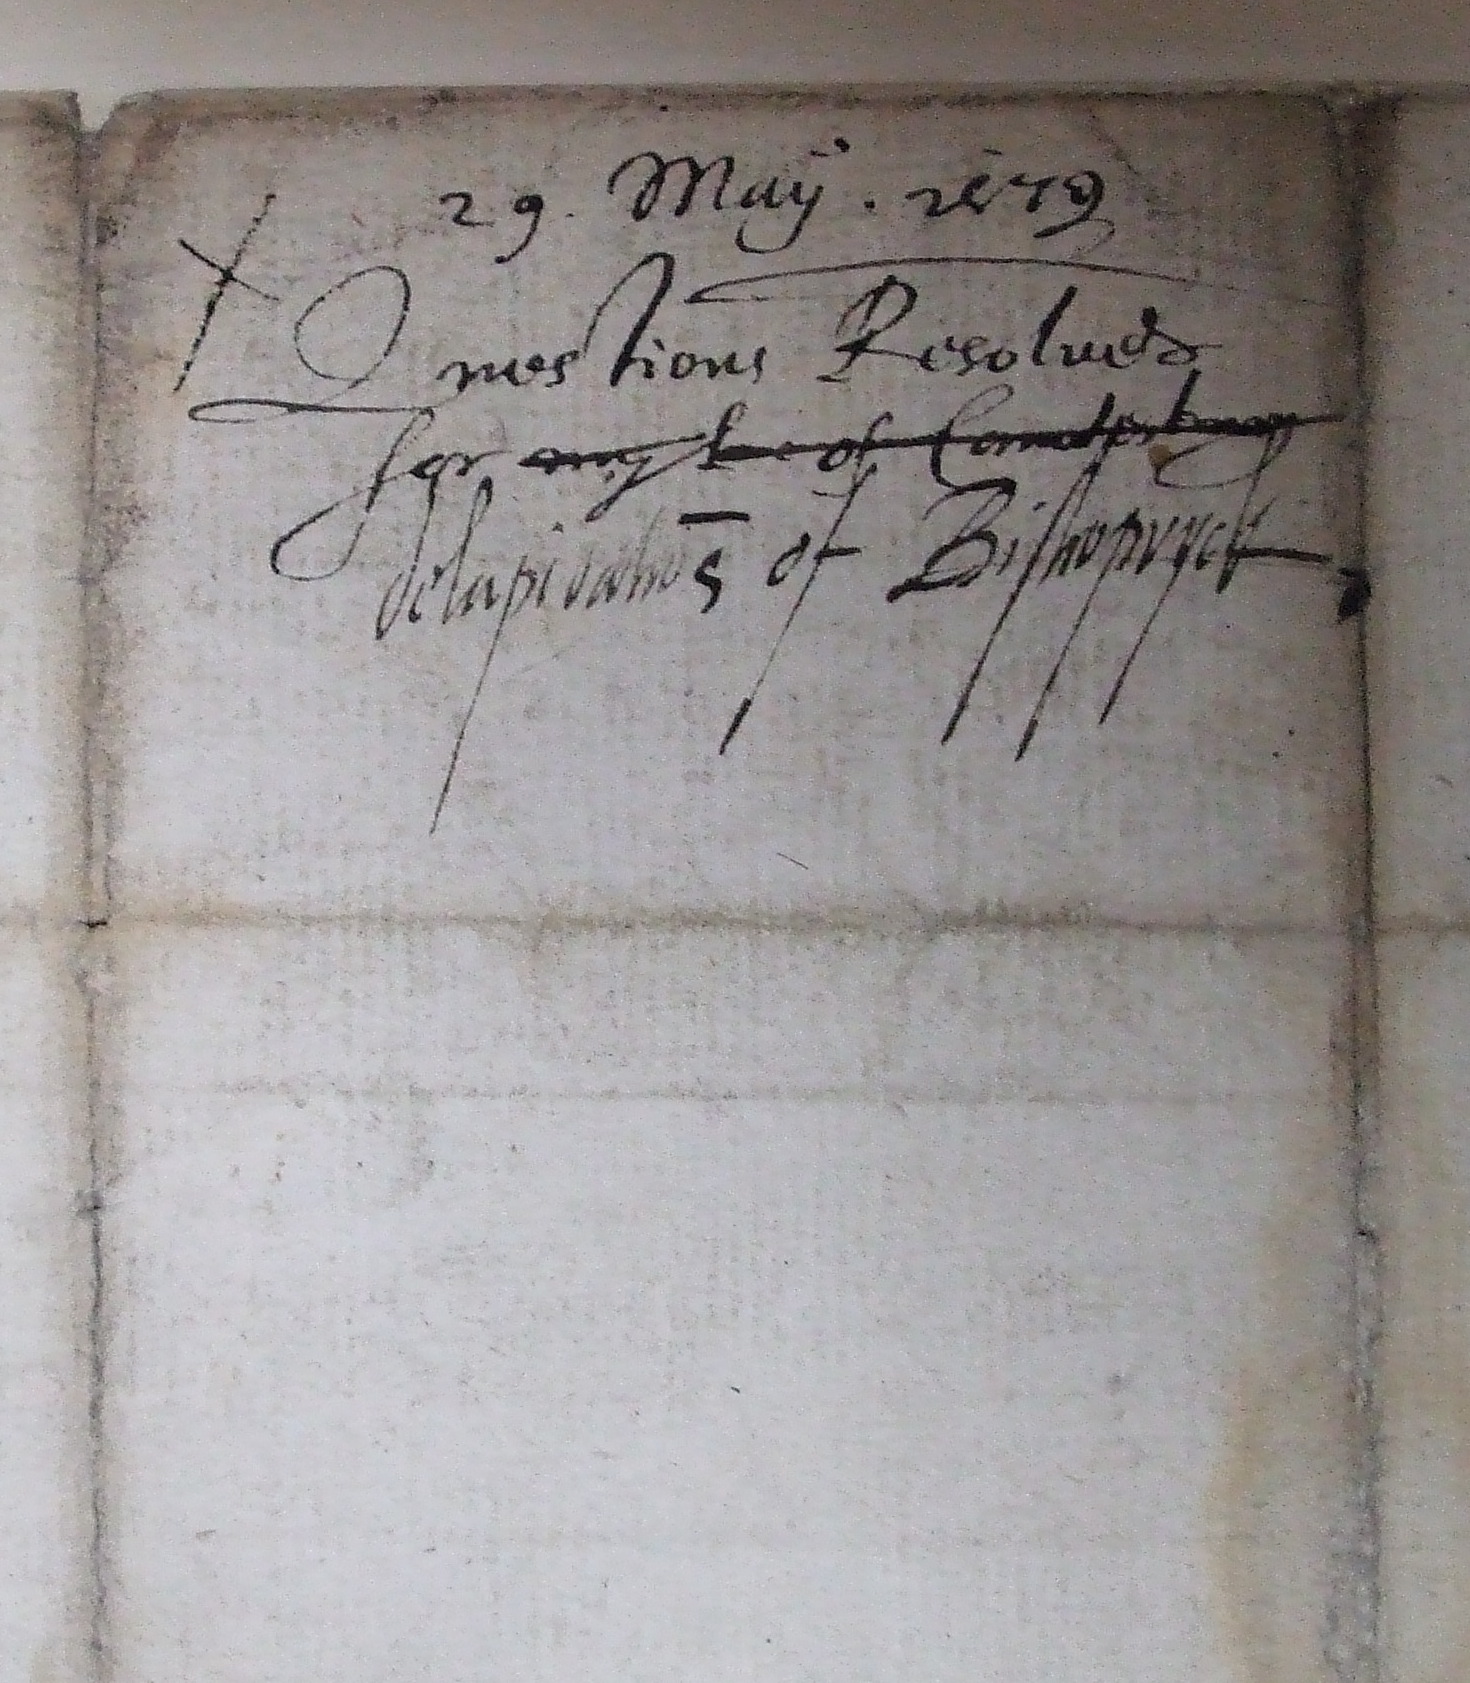 29. Maÿ. 1579
Questions Resolued
for my L of Canterbury
delapidatiōs of Bishoprycks